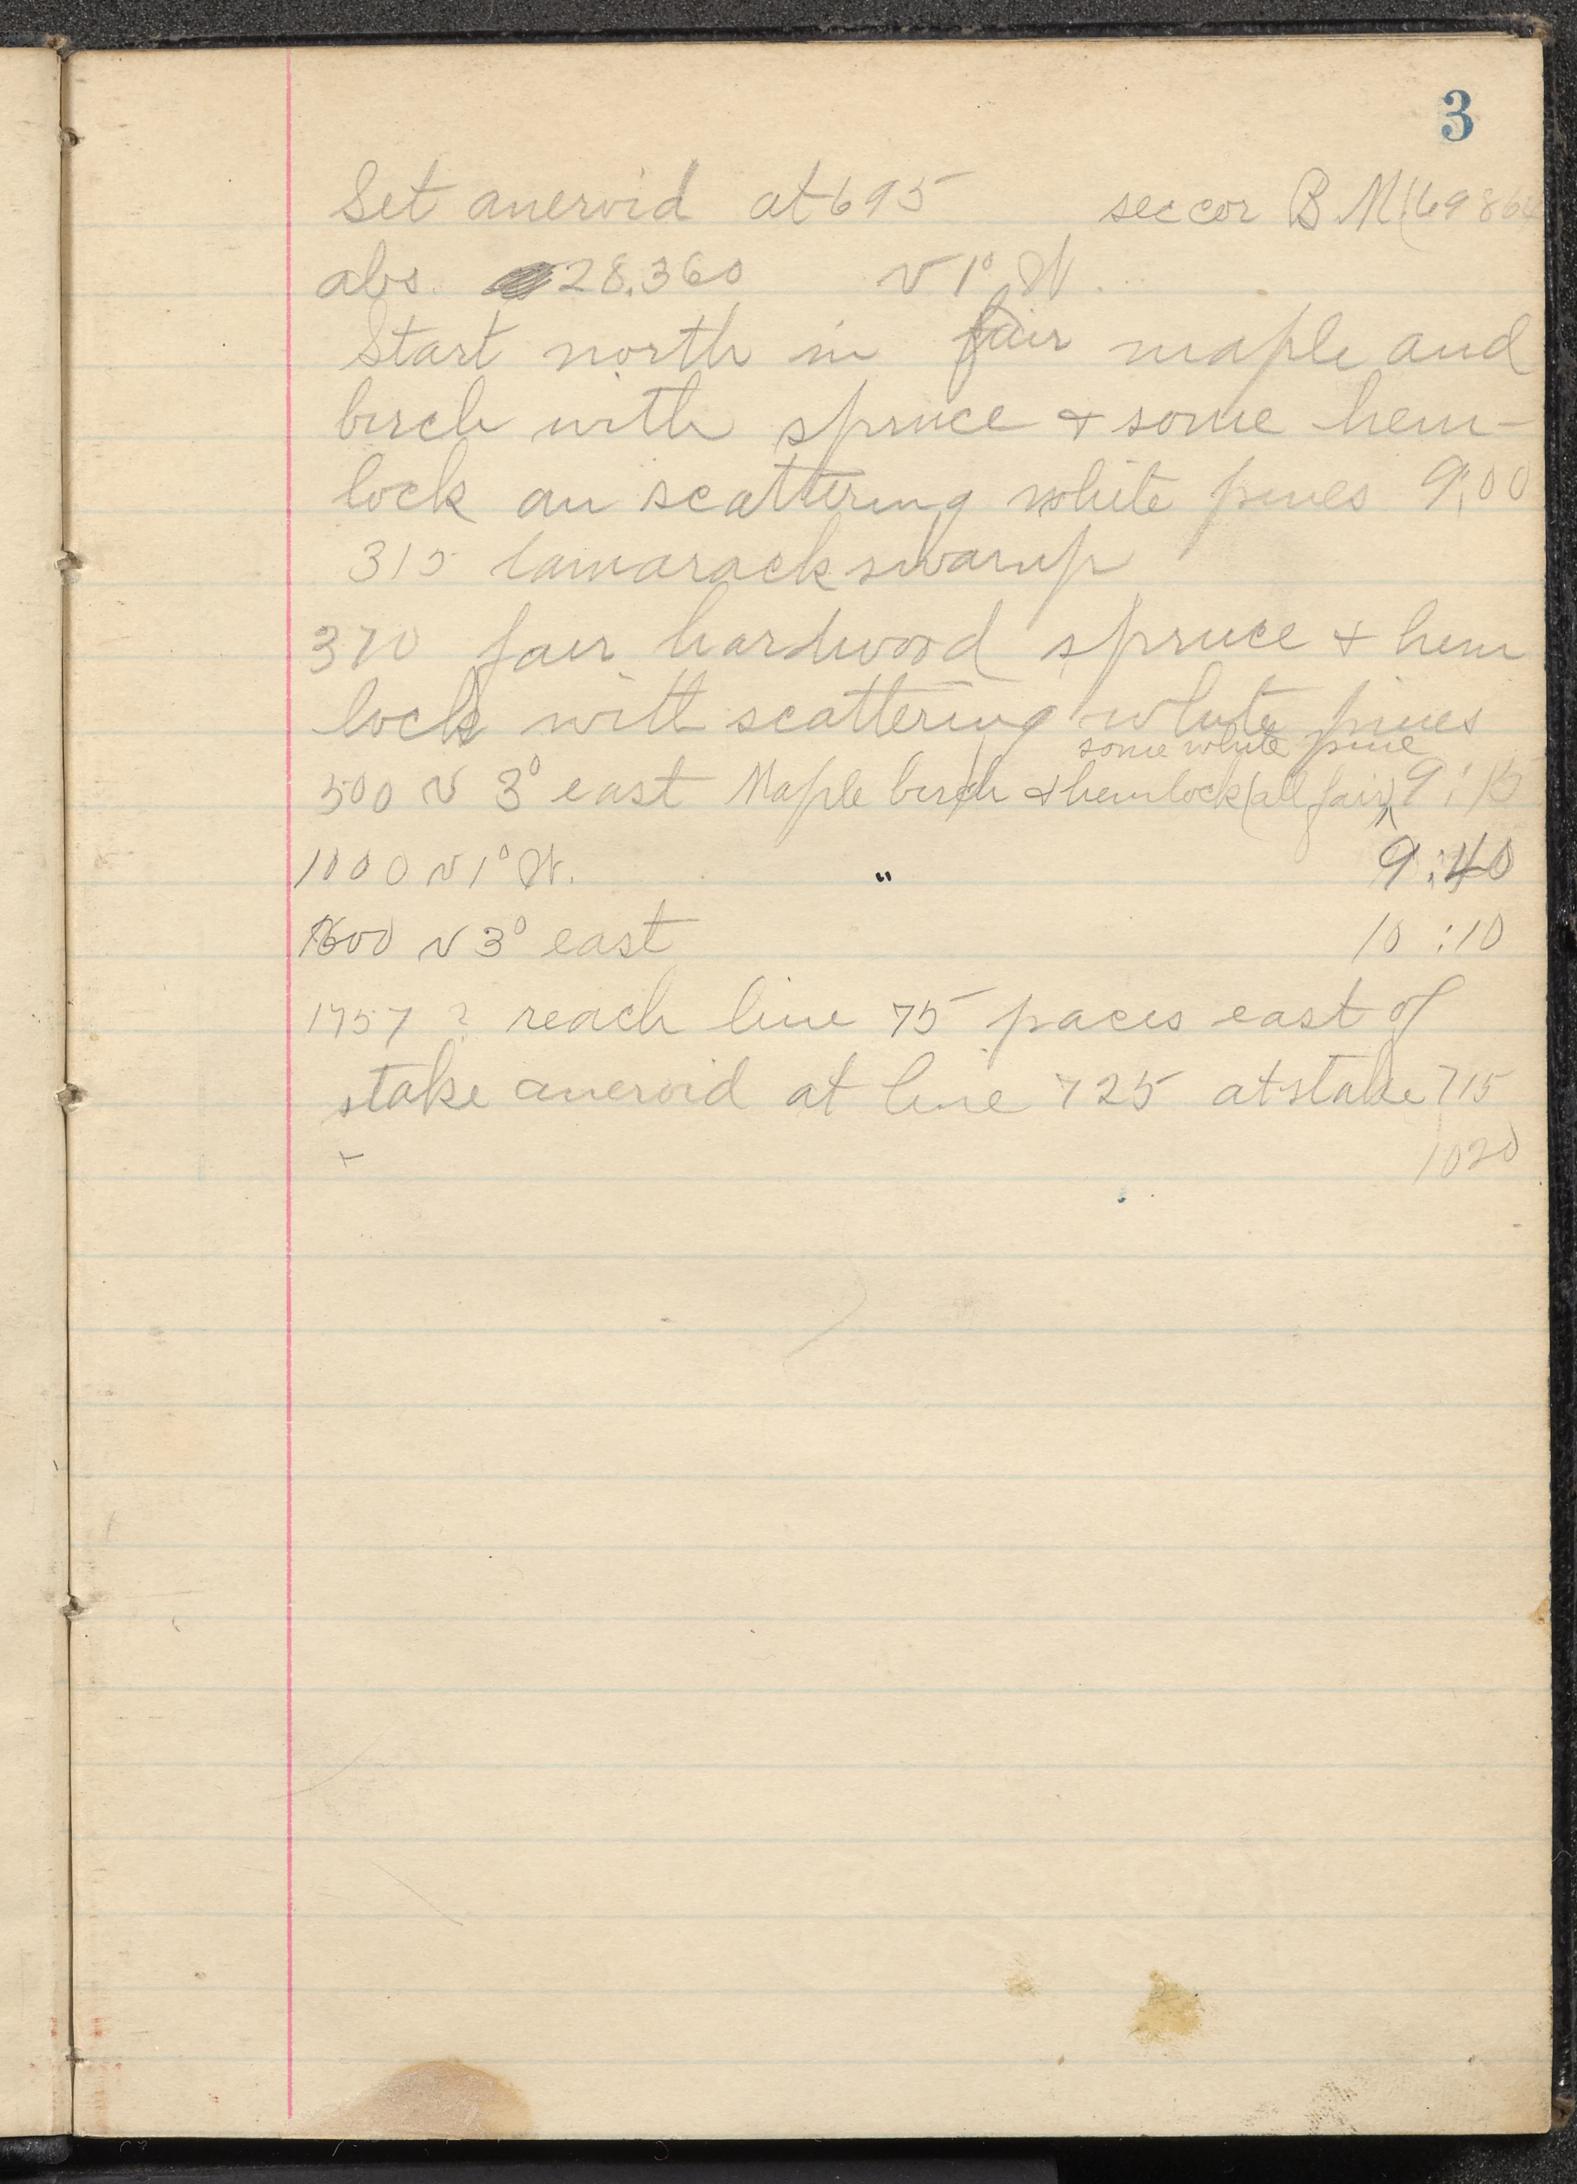 3
Set aneroid at 695 sec cor B M (69864
abs. 28.360 v 1° W.
Start north in fair maple and
birch with spruce + some hem-
lock an scattering white pines 9:00
315 tamarack swamp
370 fair hardwood spruce + hem
lock with scattering white pines
some white pine
500 v 3° east Maple birch + hemlock (all fair) 9:15
1000 v 1° W. " 9:40
1600 v 3° east 10:10
1757 ? reach line 75 paces east of
stake aneroid at line 725 at stake 715
1020